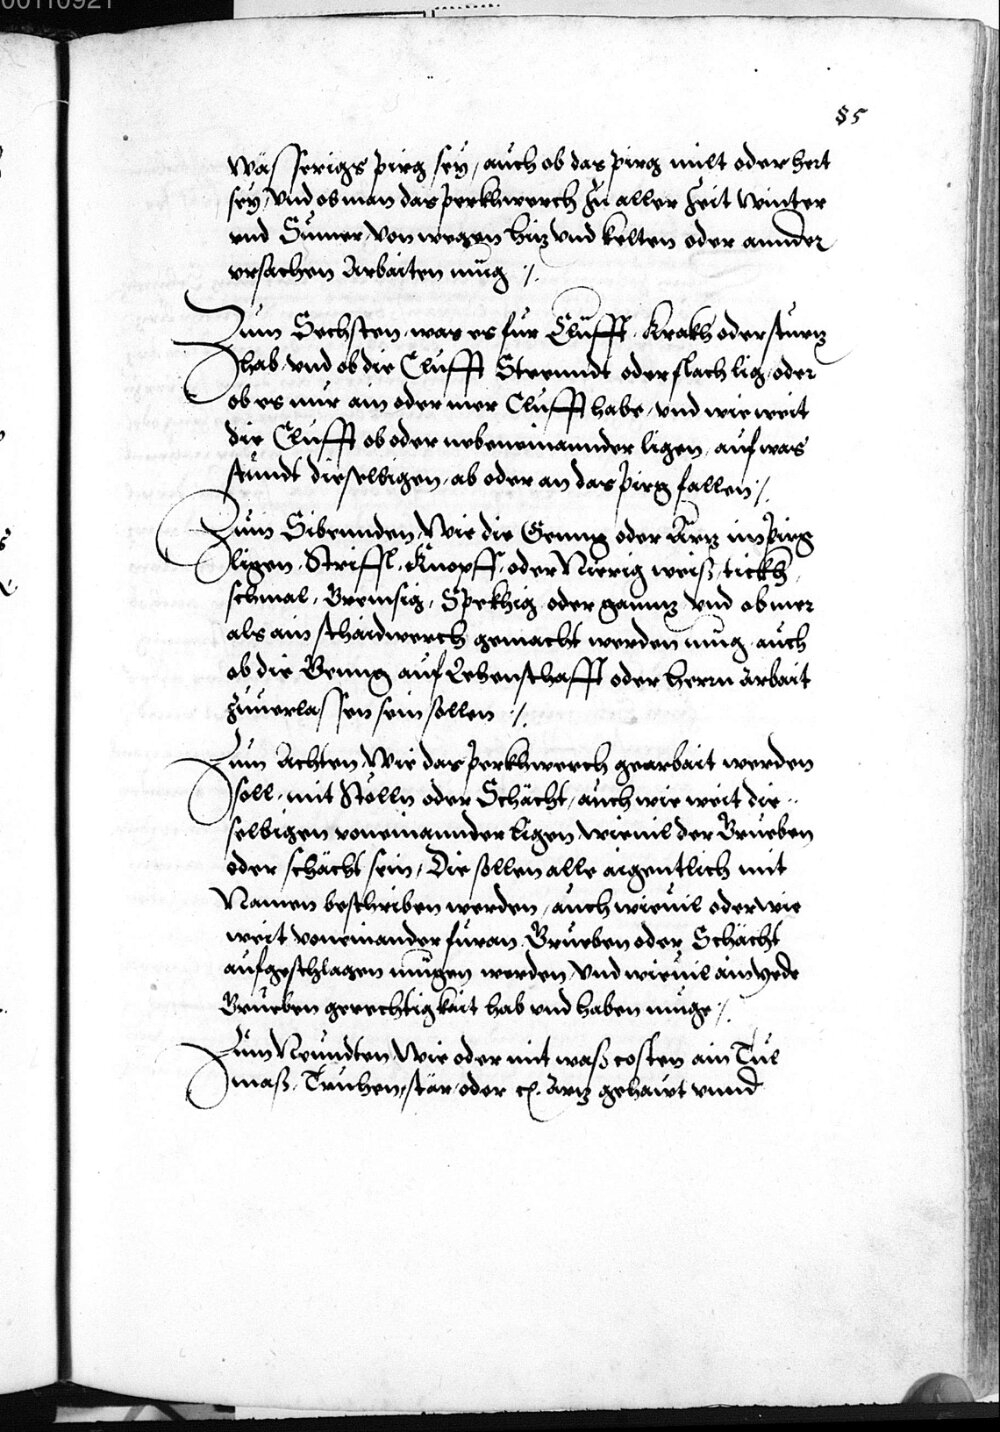 00110921
85
Wässerigs pirg sey, auch ob das pirg milt oder hert
sey, Vnd ob man das perkhwerch zu aller Zeit Winter
vnd Sumer, von wegen hiz vnd kelten oder annder
vrsachen Arbaiten müg ./.
Zum Sechsten, was es für Clüfft, Krakh oder sturz
hab, vnd ob die Clufft Steenndt oder flach lig, oder
ob es nur ain oder mer Clufft habe, vnd wie weit
die Clufft ob oder nebeneinannder ligen, auf was
stundt dieselbigen, ab oder an das pirg fallen ./.
Zum Sibennden, Wie die Genng oder Ärz im pirg
ligen, Striffl, Knopff, oder Nierig weiß, tickh,
schmal, Bremsig, Spekhig, oder gannz, Vnd ob mer
als ain schaidwerch gemacht werden müg, auch
ob die Genng auf Lehenschafft oder herrn arbait
zuuerlassen sein sollen ./.
Zum Achten, Wie das perkhwerch gearbait werden
soll, mit Stölln oder Schächt, auch wie weit die-
selbigen voneinannder ligen, wieuil der Grueben
oder schächt sein, Die sollen alle aigentlich mit
Namen beschriben werden, auch wieuil oder wie
weit voneinander füran Grueben oder Schächt
aufgeschlagen mügen werden, Vnd wieuil ain yede
Grueben gerechtigkait hab vnd haben müge ./.
Zum Neundten, Wie oder mit waß costen ain Tul
maß, Truhen, stär, oder Ärz gehawt vnnd